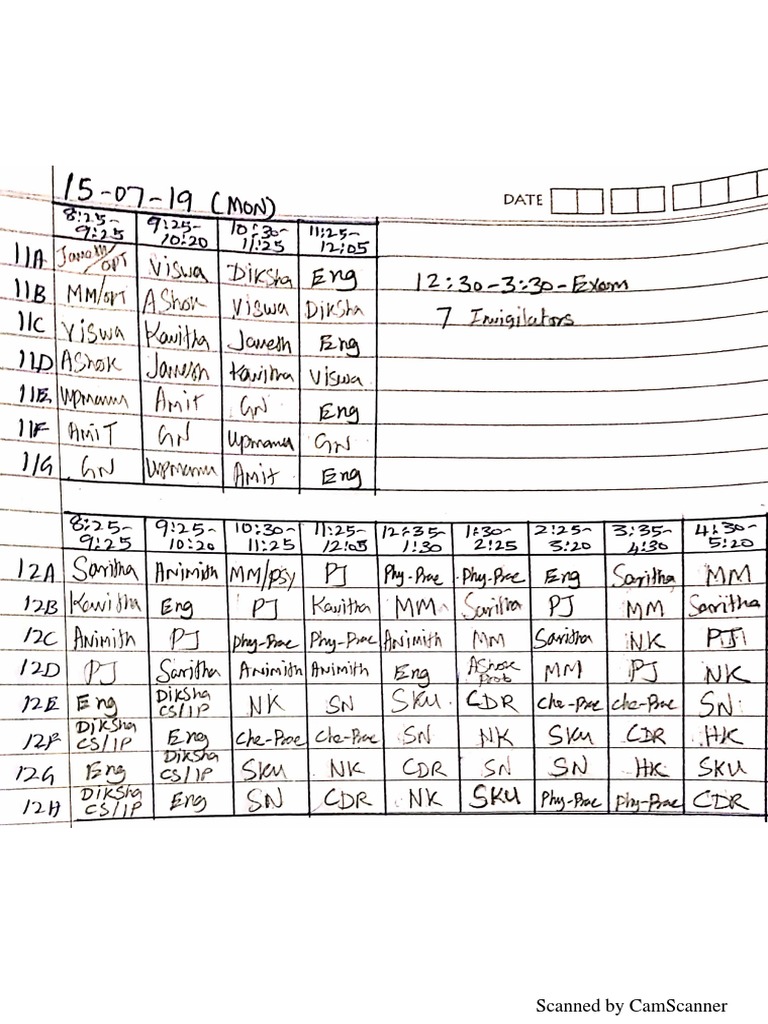 15-07-19 (MON)
DATE
8:25-9:25 9:25-10:20 10:30-11:25 11:25-12:05
11A Janesh/OPT Viswa Diksha Eng
12:30-3:30-Exam
11B MM/OPT Ashok Viswa Diksha
7 Invigilators
11C Viswa Kavitha Janesh Eng
11D Ashok Janesh Kavitha Viswa
11E Upmanu Amit GN Eng
11F Amit GN Upmanu GN
11G GN Upmanu Amit Eng
8:25-9:25 9:25-10:20 10:30-11:25 11:25-12:05 12:35-1:30 1:30-2:25 2:25-3:20 3:35-4:30 4:30-5:20
12A Saritha Animish MM/PSY PJ Phy-Prac Phy-Prac Eng Saritha MM
12B Kavitha Eng PJ Kavitha MM Saritha PJ MM Saritha
12C Animish PJ Phy-Prac Phy-Prac Animish MM Saritha NK PJ
12D PJ Saritha Animish Animish Eng Ashok Prob MM PJ NK
12E Eng Diksha CS/IP NK SN SKU CDR Che-Prac Che-Prac SN
12F Diksha CS/IP Eng Che-Prac Che-Prac SN NK SKU CDR HK
12G Eng Diksha CS/IP SKU NK CDR SN SN HK SKU
12H Diksha CS/IP Eng SN CDR NK SKU Phy-Prac Phy-Prac CDR
Scanned by CamScanner